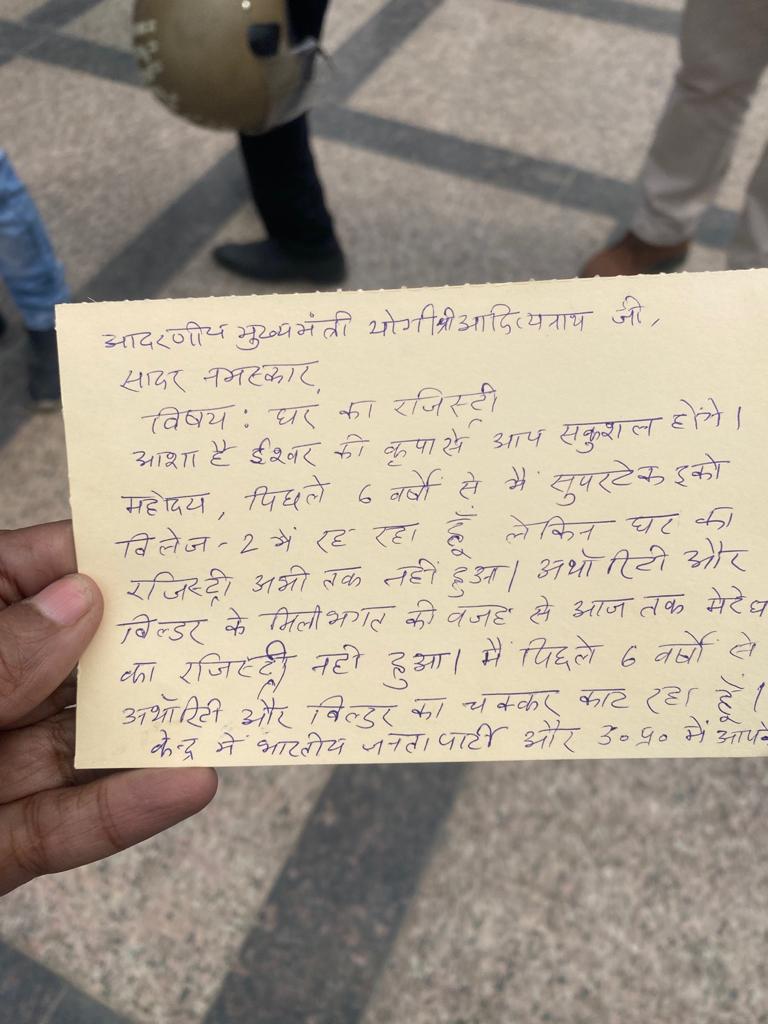 आदरणीय मुख्यमंत्री योगी श्री आदित्यनाथ जी,
सादर नमस्कार,
विषय: घर का रजिस्ट्री
आशा है ईश्वर की कृपा से आप सकुशल होंगे।
महोदय, पिछले 6 वर्षों से मैं सुपरटेक इको
विलेज-2 में रह रहा हूँ लेकिन घर की
रजिस्ट्री अभी तक नहीं हुआ। अथॉरिटी और
बिल्डर के मिलीभगत की वजह से आज तक मेरे घ
का रजिस्ट्री नही हुआ। मैं पिछले 6 वर्षों से
अथॉरिटी और बिल्डर का चक्कर काट रहा हूँ।
केन्द्र में भारतीय जनता पार्टी और उ॰ प्र॰ में आपके